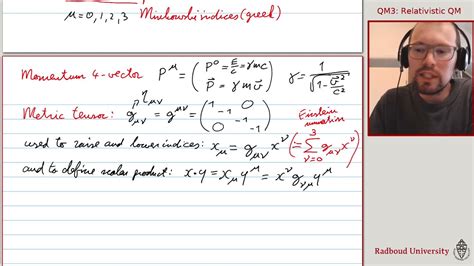 μ = 0, 1, 2, 3 Minkowski indices (greek)
QM3: Relativistic QM
Momentum 4-vector P^μ = ( P^0 = E/c = γmc
P⃗ = γ m v⃗ ) γ = 1/√(1 - v⃗²/c²)
Metric tensor: g_μν = g^μν = ( 1 0
-1
-1
0 -1 )
η_μν
Einstein
summation
used to raise and lower indices: x_μ = g_μν x^ν (= Σ_{ν=0}^{3} g_μν x^ν)
and to define scalar product: x·y = x_μ y^μ = x^ν g_νμ y^μ
Radboud University